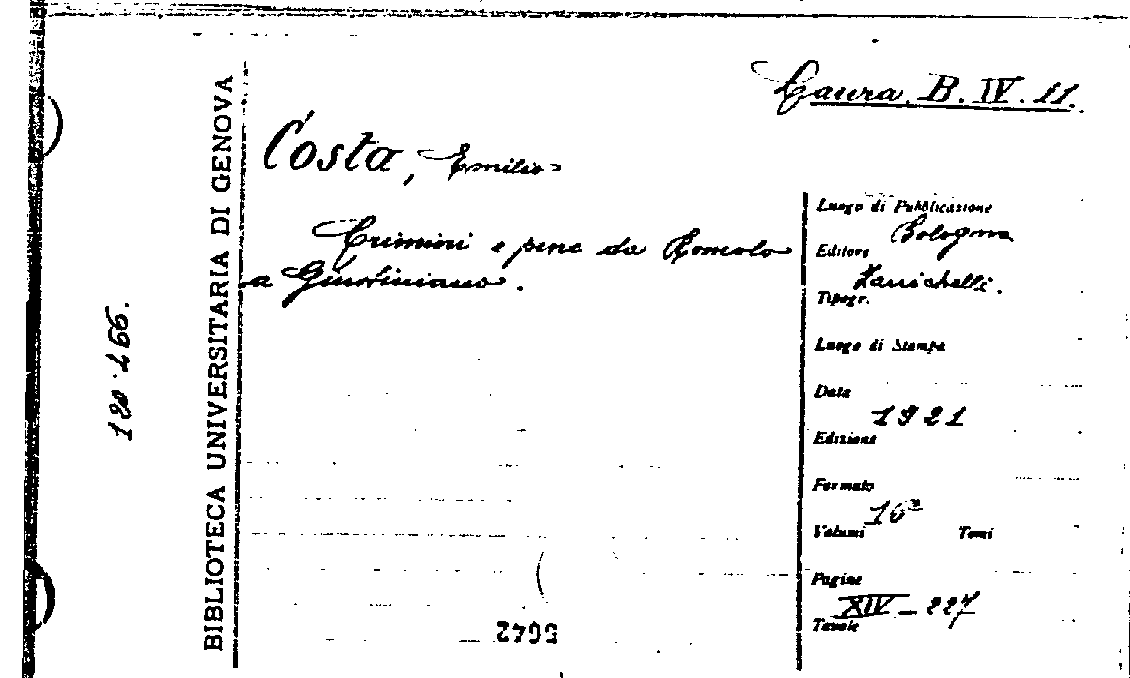 BIBLIOTECA UNIVERSITARIA DI GENOVA
120.466.
Laura B. IV. 11.
Costa, Emilio
Crimini e pene da Romolo
a Giustiniano.
Luogo di Pubblicazione
Bologna
Editore
Zanichelli.
Tipogr.
Luogo di Stampa
Data
1921
Edizione
Formato
16º
Volumi Tomi
Pagine
XIV-227
Tavole
5642